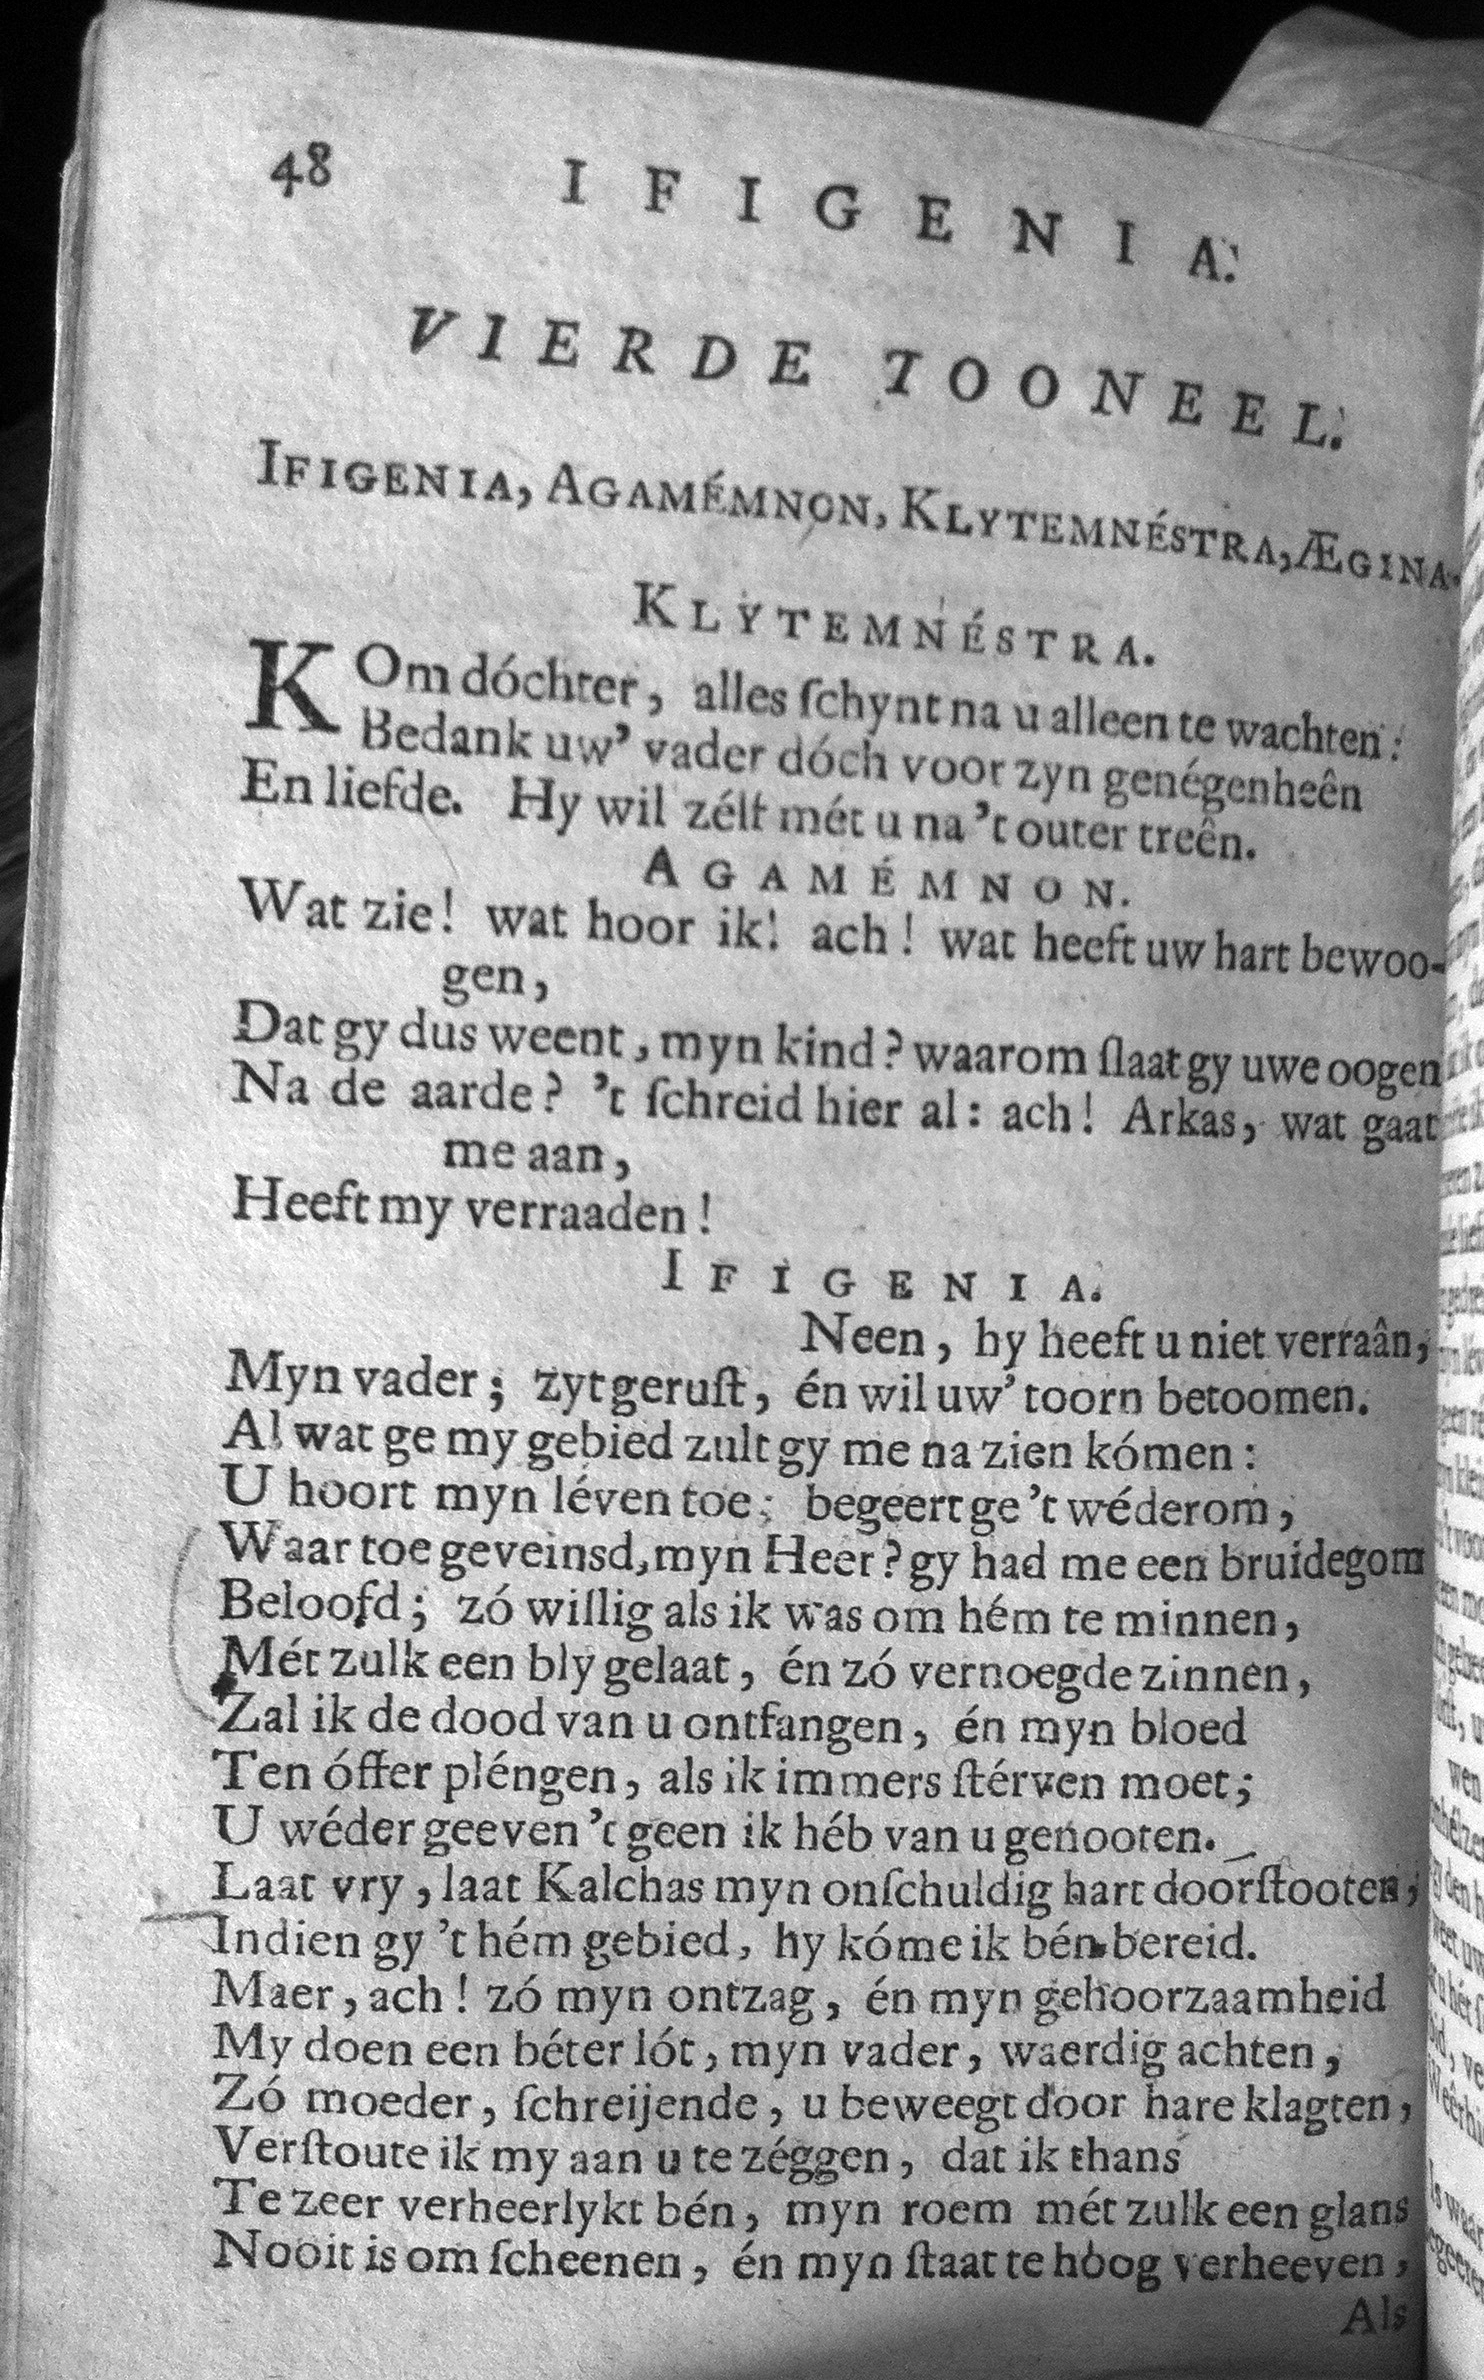 48 IFIGENIA.
VIERDE TOONEEL.
IFIGENIA, AGAMÉMNON, KLYTEMNÉSTRA, ÆGINA.
KLYTEMNÉSTRA.
KOm dóchter, alles ſchynt na u alleen te wachten:
Bedank uw' vader dóch voor zyn genégenheên
En liefde. Hy wil zélf mét u na 't outer treên.
AGAMÉMNON.
Wat zie! wat hoor ik! ach! wat heeft uw hart bewoo-
gen,
Dat gy dus weent, myn kind? waarom ſlaat gy uwe oogen
Na de aarde? 't ſchreid hier al: ach! Arkas, wat gaat
me aan,
Heeft my verraaden!
IFIGENIA.
Neen, hy heeft u niet verraân,
Myn vader; zyt geruſt, én wil uw' toorn betoomen.
Al wat ge my gebied zult gy me na zien kómen:
U hoort myn léven toe; begeert ge 't wéderom,
Waar toe geveinsd, myn Heer? gy had me een bruidegom
Beloofd; zó willig als ik was om hém te minnen,
Mét zulk een bly gelaat, én zó vernoegde zinnen,
Zal ik de dood van u ontfangen, én myn bloed
Ten óffer pléngen, als ik immers ſtérven moet;
U wéder geeven 't geen ik héb van u genooten.
Laat vry, laat Kalchas myn onſchuldig hart doorſtooten,
Indien gy 't hém gebied, hy kóme ik bén bereid.
Maer, ach! zó myn ontzag, én myn gehoorzaamheid
My doen een béter lót, myn vader, waerdig achten,
Zó moeder, ſchreijende, u beweegt door hare klagten,
Verſtoute ik my aan u te zéggen, dat ik thans
Te zeer verheerlykt bén, myn roem mét zulk een glans
Nooit is om ſcheenen, én myn ſtaat te hoog verheeven,
Als